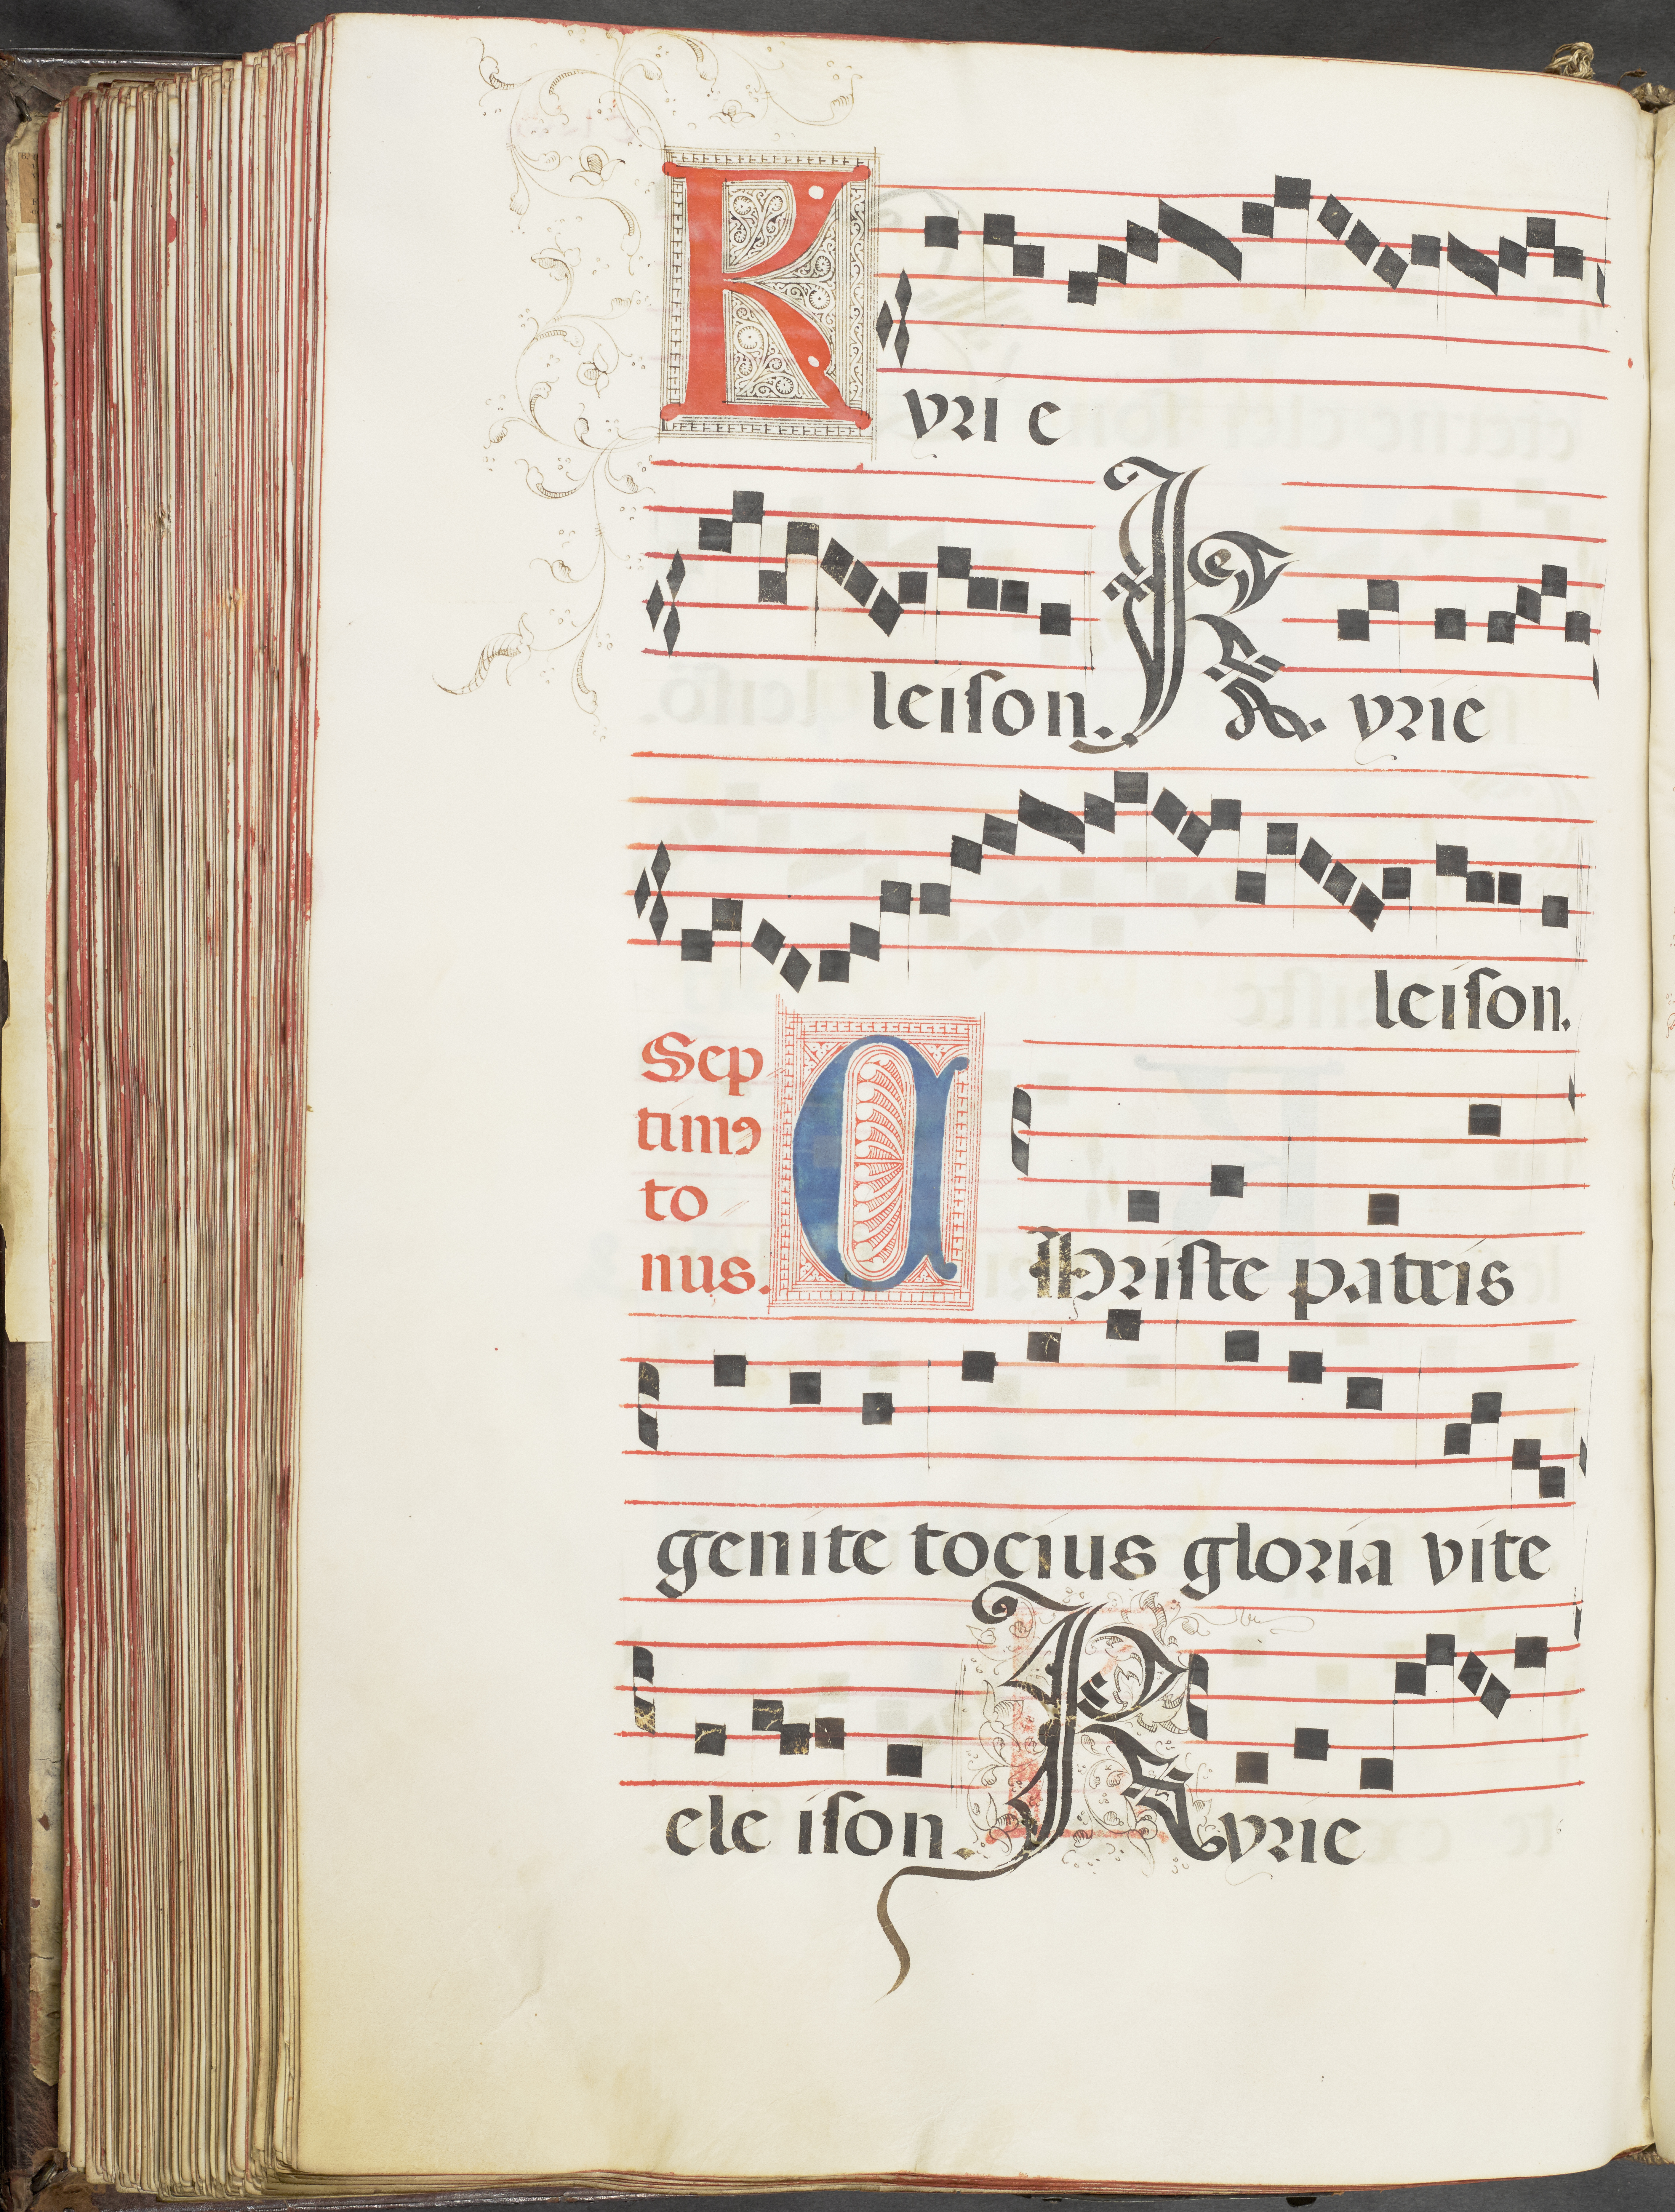 Kyri e
leiſon. Kyrie
leiſon.
Sep
timꝰ
to
nus.
Chriſte patris
genite tocius gloria vite
ele iſon. Kyrie